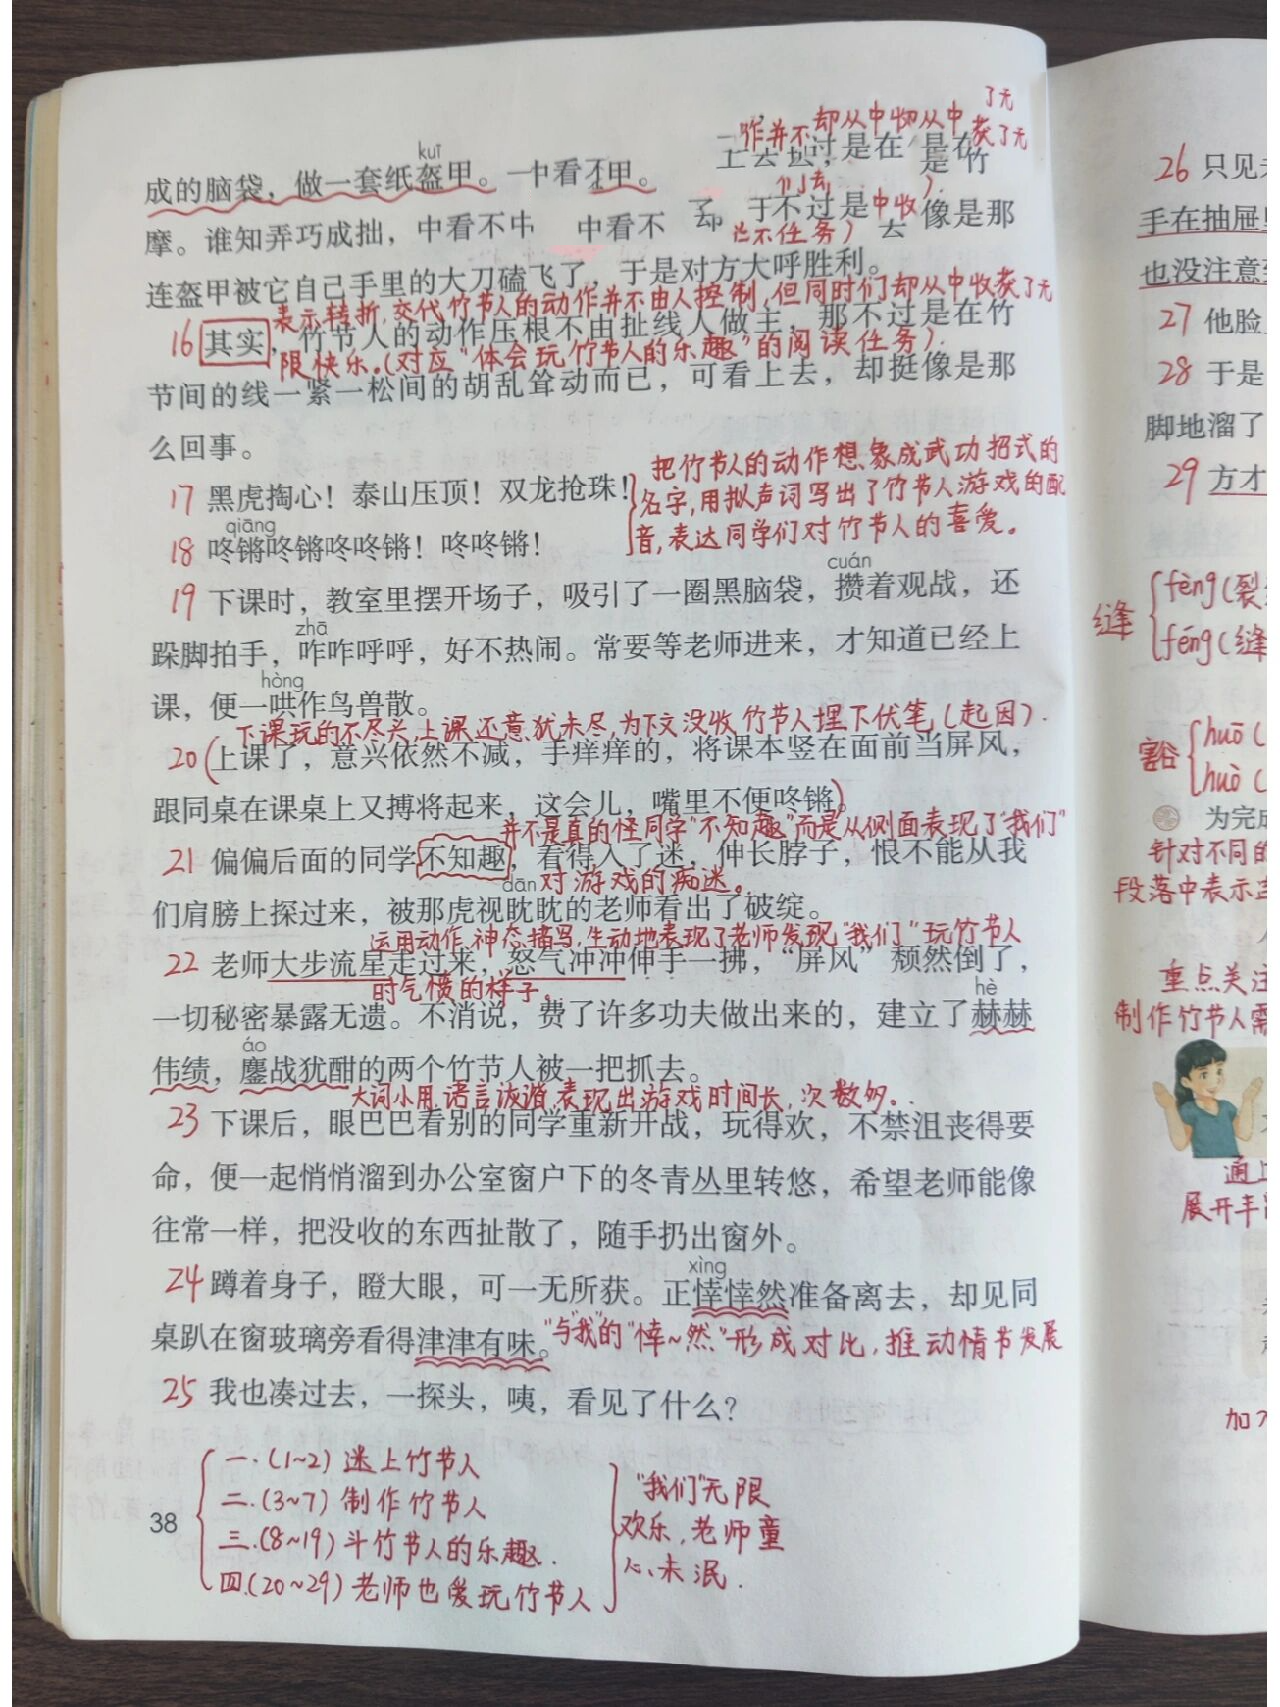 kuī
成的脑袋，做一套纸盔甲。一中看不甲。
摩。谁知弄巧成拙，中看不中 中看不
连盔甲被它自己手里的大刀磕飞了，于是对方大呼胜利。
表示转折，交代竹节人的动作并不由人控制，但同时们却从中收获了无
16 其实，竹节人的动作压根不由扯线人做主，那不过是在竹
限快乐。（对应“体会玩竹节人的乐趣”的阅读任务）.
节间的线一紧一松间的胡乱耸动而已，可看上去，却挺像是那
么回事。
把竹节人的动作想象成武功招式的
17 黑虎掏心！泰山压顶！双龙抢珠！
名字，用拟声词写出了竹节人游戏的配
qiāng
18 咚锵咚锵咚咚锵！咚咚锵！
音，表达同学们对竹节人的喜爱。
cuán
19 下课时，教室里摆开场子，吸引了一圈黑脑袋，攒着观战，还
zhā
跺脚拍手，咋咋呼呼，好不热闹。常要等老师进来，才知道已经上
hòng
课，便一哄作鸟兽散。
下课玩的不尽头，上课还意犹未尽，为下文没收竹节人埋下伏笔（起因）.
20（上课了，意兴依然不减，手痒痒的，将课本竖在面前当屏风，
跟同桌在课桌上又搏将起来，这会儿，嘴里不便咚锵）。
并不是真的怪同学“不知趣”而是从侧面表现了“我们”
21 偏偏后面的同学不知趣，看得入了迷，伸长脖子，恨不能从我
dān 对游戏的痴迷。
们肩膀上探过来，被那虎视眈眈的老师看出了破绽。
运用动作、神态描写，生动地表现了老师发现“我们”玩竹节人
22 老师大步流星走过来，怒气冲冲伸手一拂，“屏风”颓然倒了，
时气愤的样子。
hè
一切秘密暴露无遗。不消说，费了许多功夫做出来的，建立了赫赫
áo
伟绩，鏖战犹酣的两个竹节人被一把抓去。
大词小用，语言诙谐，表现出游戏时间长，次数多。
23 下课后，眼巴巴看别的同学重新开战，玩得欢，不禁沮丧得要
命，便一起悄悄溜到办公室窗户下的冬青丛里转悠，希望老师能像
往常一样，把没收的东西扯散了，随手扔出窗外。
xìng
24 蹲着身子，瞪大眼，可一无所获。正悻悻然准备离去，却见同
桌趴在窗玻璃旁看得津津有味。“与“我”的“悻~然”形成对比，推动情节发展
25 我也凑过去，一探头，咦，看见了什么？
一.（1~2）迷上竹节人
二.（3~7）制作竹节人
三.（8~19）斗竹节人的乐趣.
四.（20~29）老师也爱玩竹节人
“我们”无限
欢乐，老师童
心未泯.
38
26 只见
手在抽屉
也没注意
27 他脸
28 于是
脚地溜了
29 方才
缝
fèng（裂
féng（缝
豁
huō（
huò（
为完成
针对不同的
段落中表示
重点关注
制作竹节人需
展开丰